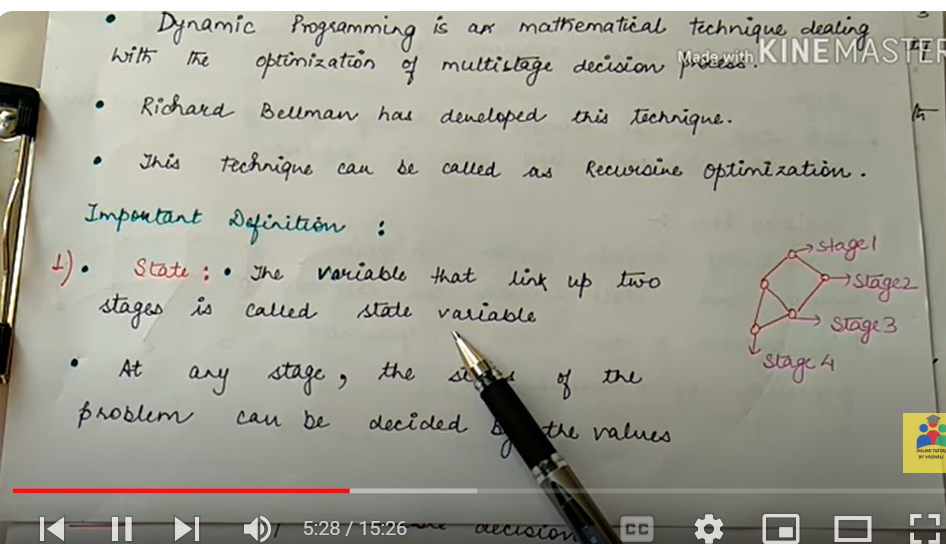 • Dynamic Programming is an mathematical technique dealing
with the optimization of multistage decision process.
Made with KINEMASTER
• Richard Bellman has developed this technique.
• This technique can be called as Recursive Optimization.
Important Definition :
1) • State : • The variable that link up two
stages is called state variable
• At any stage, the of the
problem can be decided by the values
Stage1
Stage2
Stage3
Stage 4
decision
ONLINE TUTORIAL
BY VAISHALI
5:28 / 15:26
CC